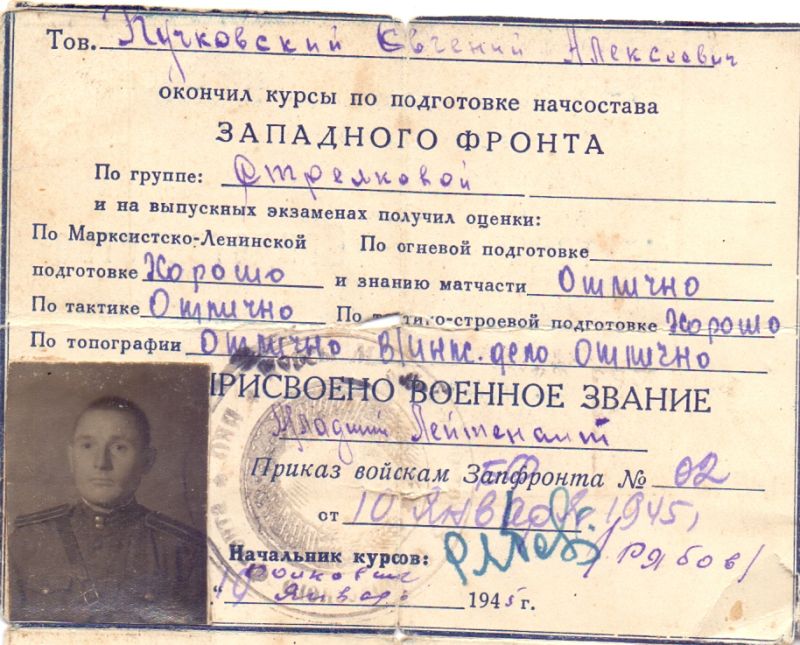 Тов. Пучковский Евгений Алексеевич
окончил курсы по подготовке начсостава
ЗАПАДНОГО ФРОНТА
По группе: Стрелковой
и на выпускных экзаменах получил оценки:
По Марксистско-Ленинской По огневой подготовке
подготовке Хорошо и знанию матчасти Отлично
По тактике Отлично По тактико-строевой подготовке Хорошо
По топографии Отлично В/инж. дело Отлично
ПРИСВОЕНО ВОЕННОЕ ЗВАНИЕ
Младший Лейтенант
Приказ войскам Запфронта № 02
от 10 Января 1945г
Начальник курсов: /Рябов/
"10 Январь 1945 г.